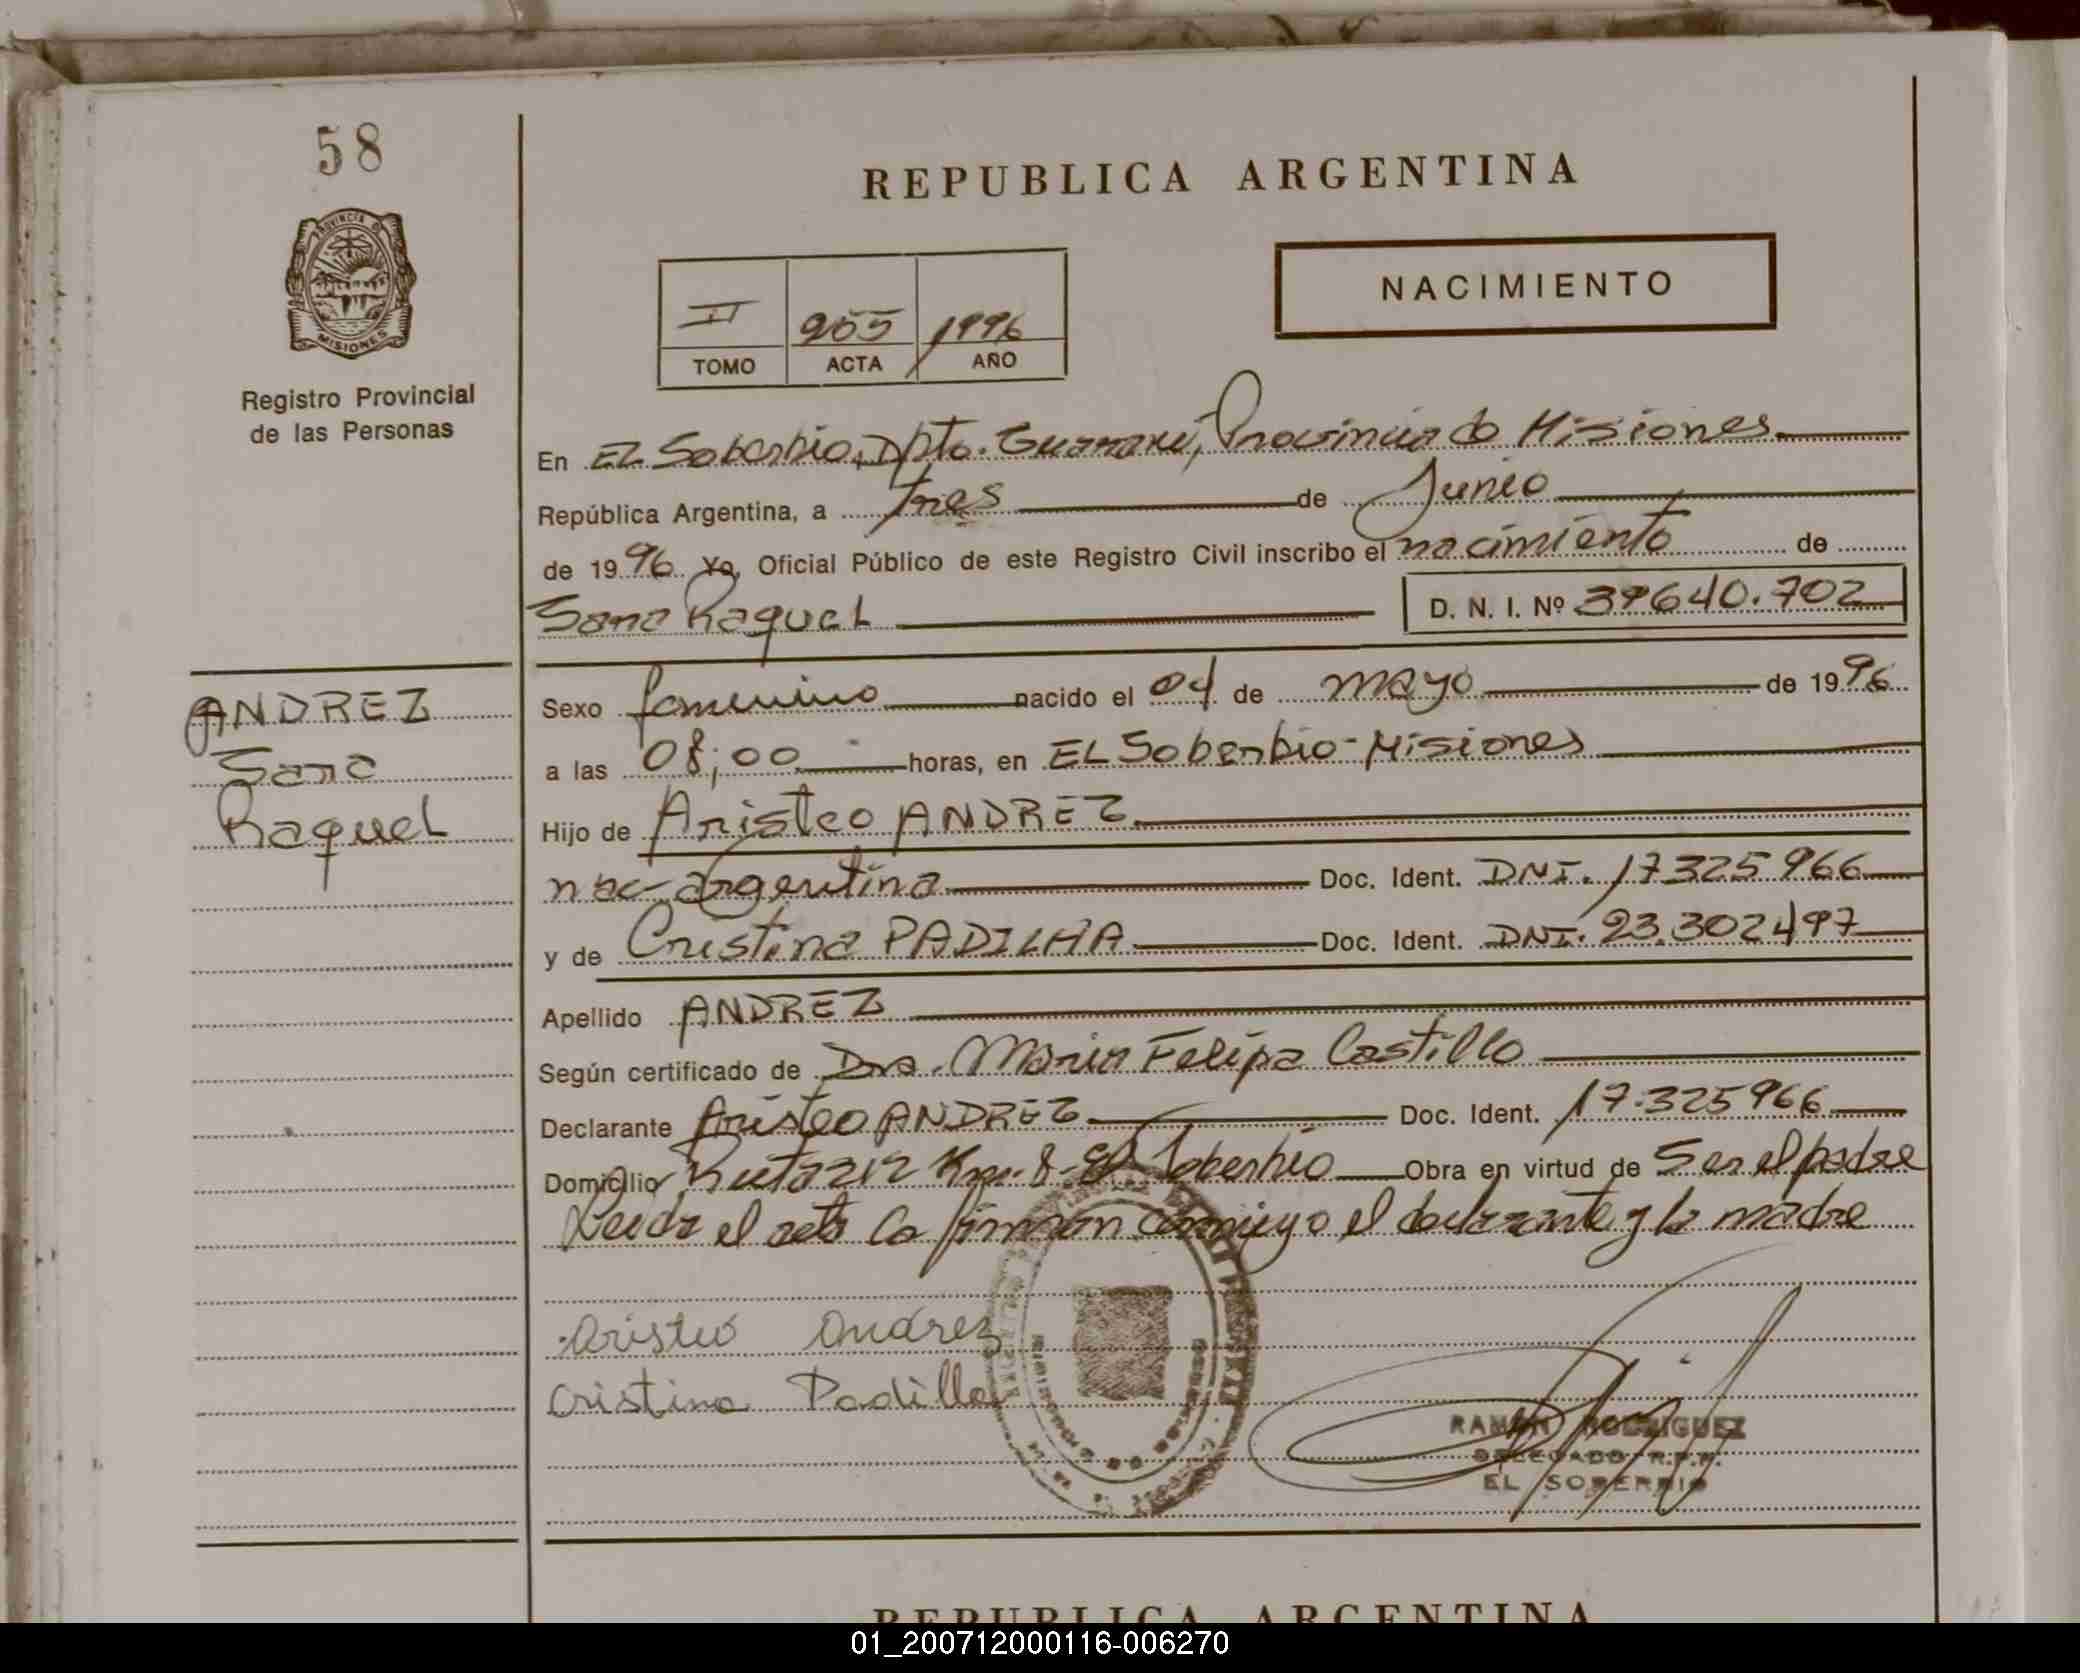 58
REPUBLICA ARGENTINA
PROVINCIA DE
MISIONES
Registro Provincial
de las Personas
II 255 1996
TOMO ACTA AÑO
NACIMIENTO
En EL Soberbio, Dpto. Guaraní, Provincia de Misiones
República Argentina, a tres de Junio
de 1996 Yo, Oficial Público de este Registro Civil inscribo el nacimiento de
Sara Raquel D. N. I. Nº 39640.702
ANDREZ
Sara
Raquel
Sexo femenino nacido el 04 de mayo de 1996
a las 08;00 horas, en EL Soberbio-Misiones
Hijo de Aristeo ANDREZ
nac-argentina Doc. Ident. DNI. 17325966
y de Cristina PADILHA Doc. Ident. DNI. 23.302497
Apellido ANDREZ
Según certificado de Dra. Maria Felipa Castillo
Declarante Aristeo ANDREZ Doc. Ident. 17.325966
Domicilio Ruta 212 Km. 8-El Soberbio Obra en virtud de Ser el padre
Leida el acta la firman conmigo el declarante y la madre
Aristeo Andrez
Cristina Padilla
RAMON RODRIGUEZ
DELEGADO R.P.P.
EL SOBERBIO
REPUBLICA ARGENTINA
01_200712000116-006270